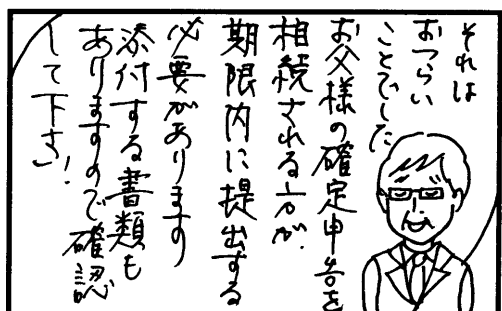 それは
おつらい
ことでした
お父様の確定申告を
相続される方が、
期限内に提出する
必要があります
添付する書類も
ありますので確認
して下さい！